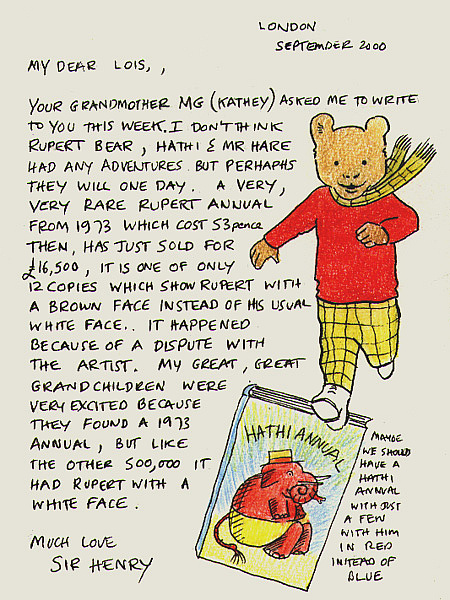 LONDON
SEPTEMBER 2000
MY DEAR LOIS, ,
YOUR GRANDMOTHER MG (KATHEY) ASKED ME TO WRITE
TO YOU THIS WEEK. I DON'T THINK
RUPERT BEAR, HATHI & MR HARE
HAD ANY ADVENTURES. BUT PERHAPHS
THEY WILL ONE DAY. A VERY,
VERY RARE RUPERT ANNUAL
FROM 1973 WHICH COST 53pence
THEN, HAS JUST SOLD FOR
£16,500, IT IS ONE OF ONLY
12 COPIES WHICH SHOW RUPERT WITH
A BROWN FACE INSTEAD OF HIS USUAL
WHITE FACE.. IT HAPPENED
BECAUSE OF A DISPUTE WITH
THE ARTIST. MY GREAT, GREAT
GRANDCHILDREN WERE
VERY EXCITED BECAUSE
THEY FOUND A 1973
ANNUAL, BUT LIKE
THE OTHER 500,000 IT
HAD RUPERT WITH A
WHITE FACE.
MUCH LOVE
SIR HENRY
HATHI ANNUAL
MAYBE
WE SHOULD
HAVE A
HATHI
ANNUAL
WITH JUST
A FEW
WITH HIM
IN RED
INTEAD OF
BLUE